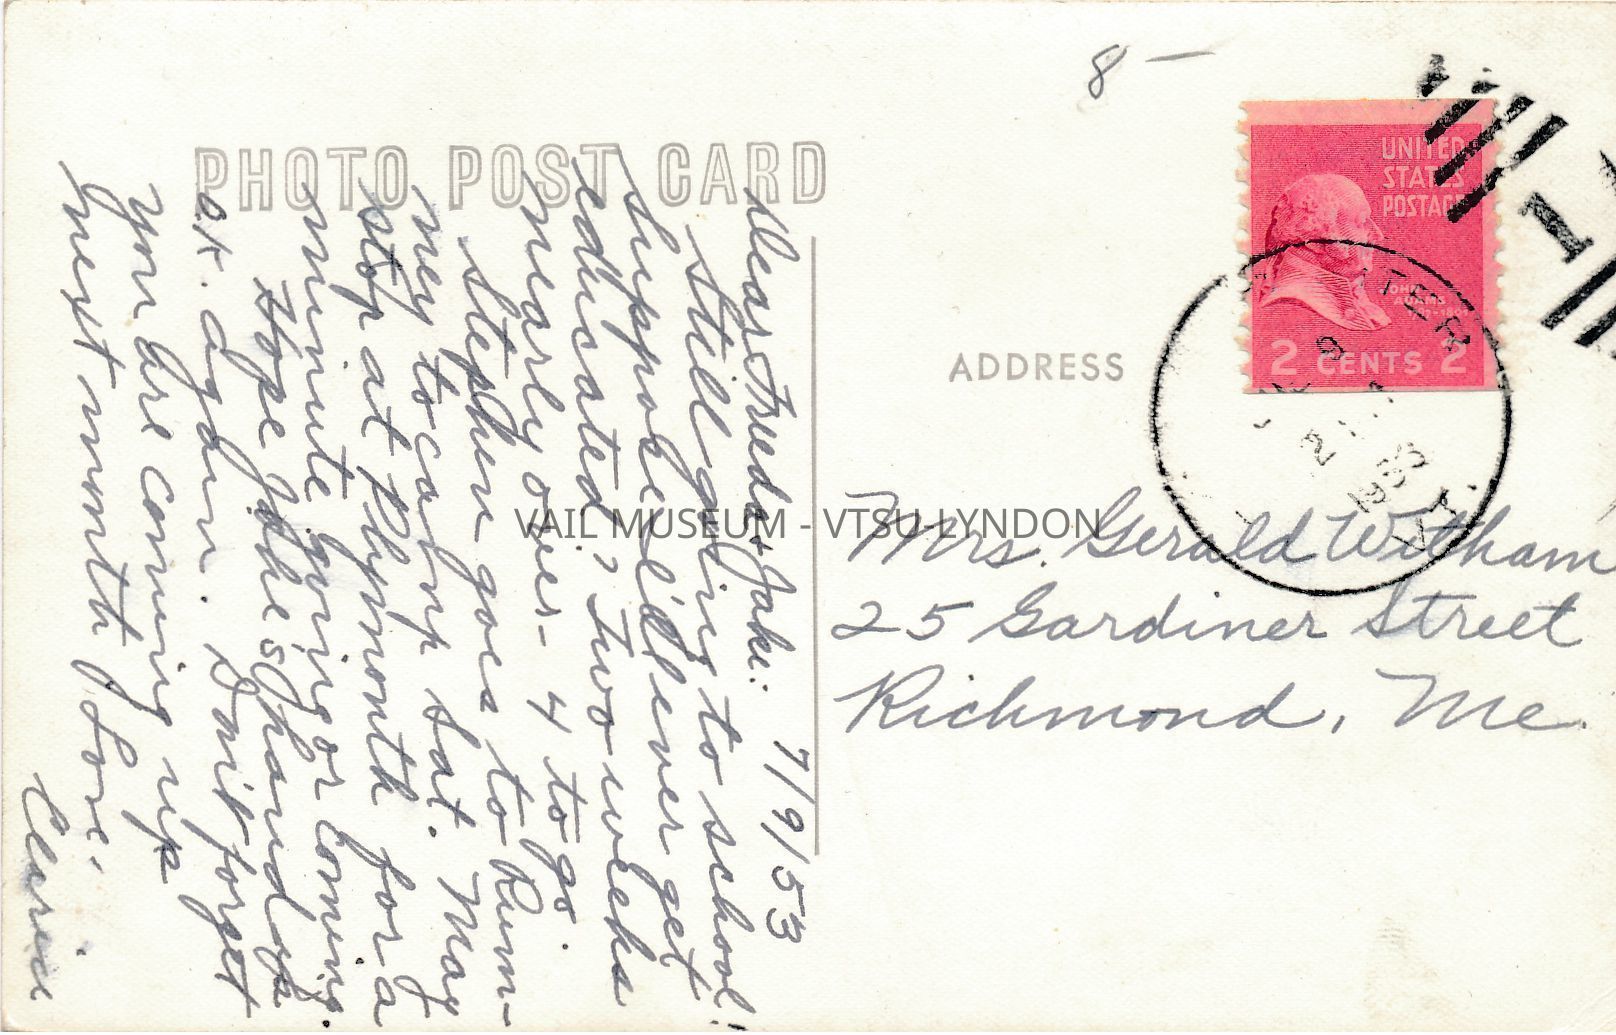 8 —
PHOTO POST CARD
UNITED
STATES
POSTAGE
JOHN
ADAMS
2 CENTS 2
1
9
2
1953
ADDRESS
VAIL MUSEUM - VTSU-LYNDON
Mrs. Gerald Witham
25 Gardiner Street
Richmond, Me.
7/9/53
Dear Frieda & Jake:
Still going to school!
Suppose I'll ever get
educated? Two weeks
nearly over - 4 to go.
Stephen goes to Rum-
ney to camp Sat. May
stop at Plymouth for a
minute going or coming.
Hope Jake's hand is
o.k. again. Don't forget
you are coming up
next month. Love,